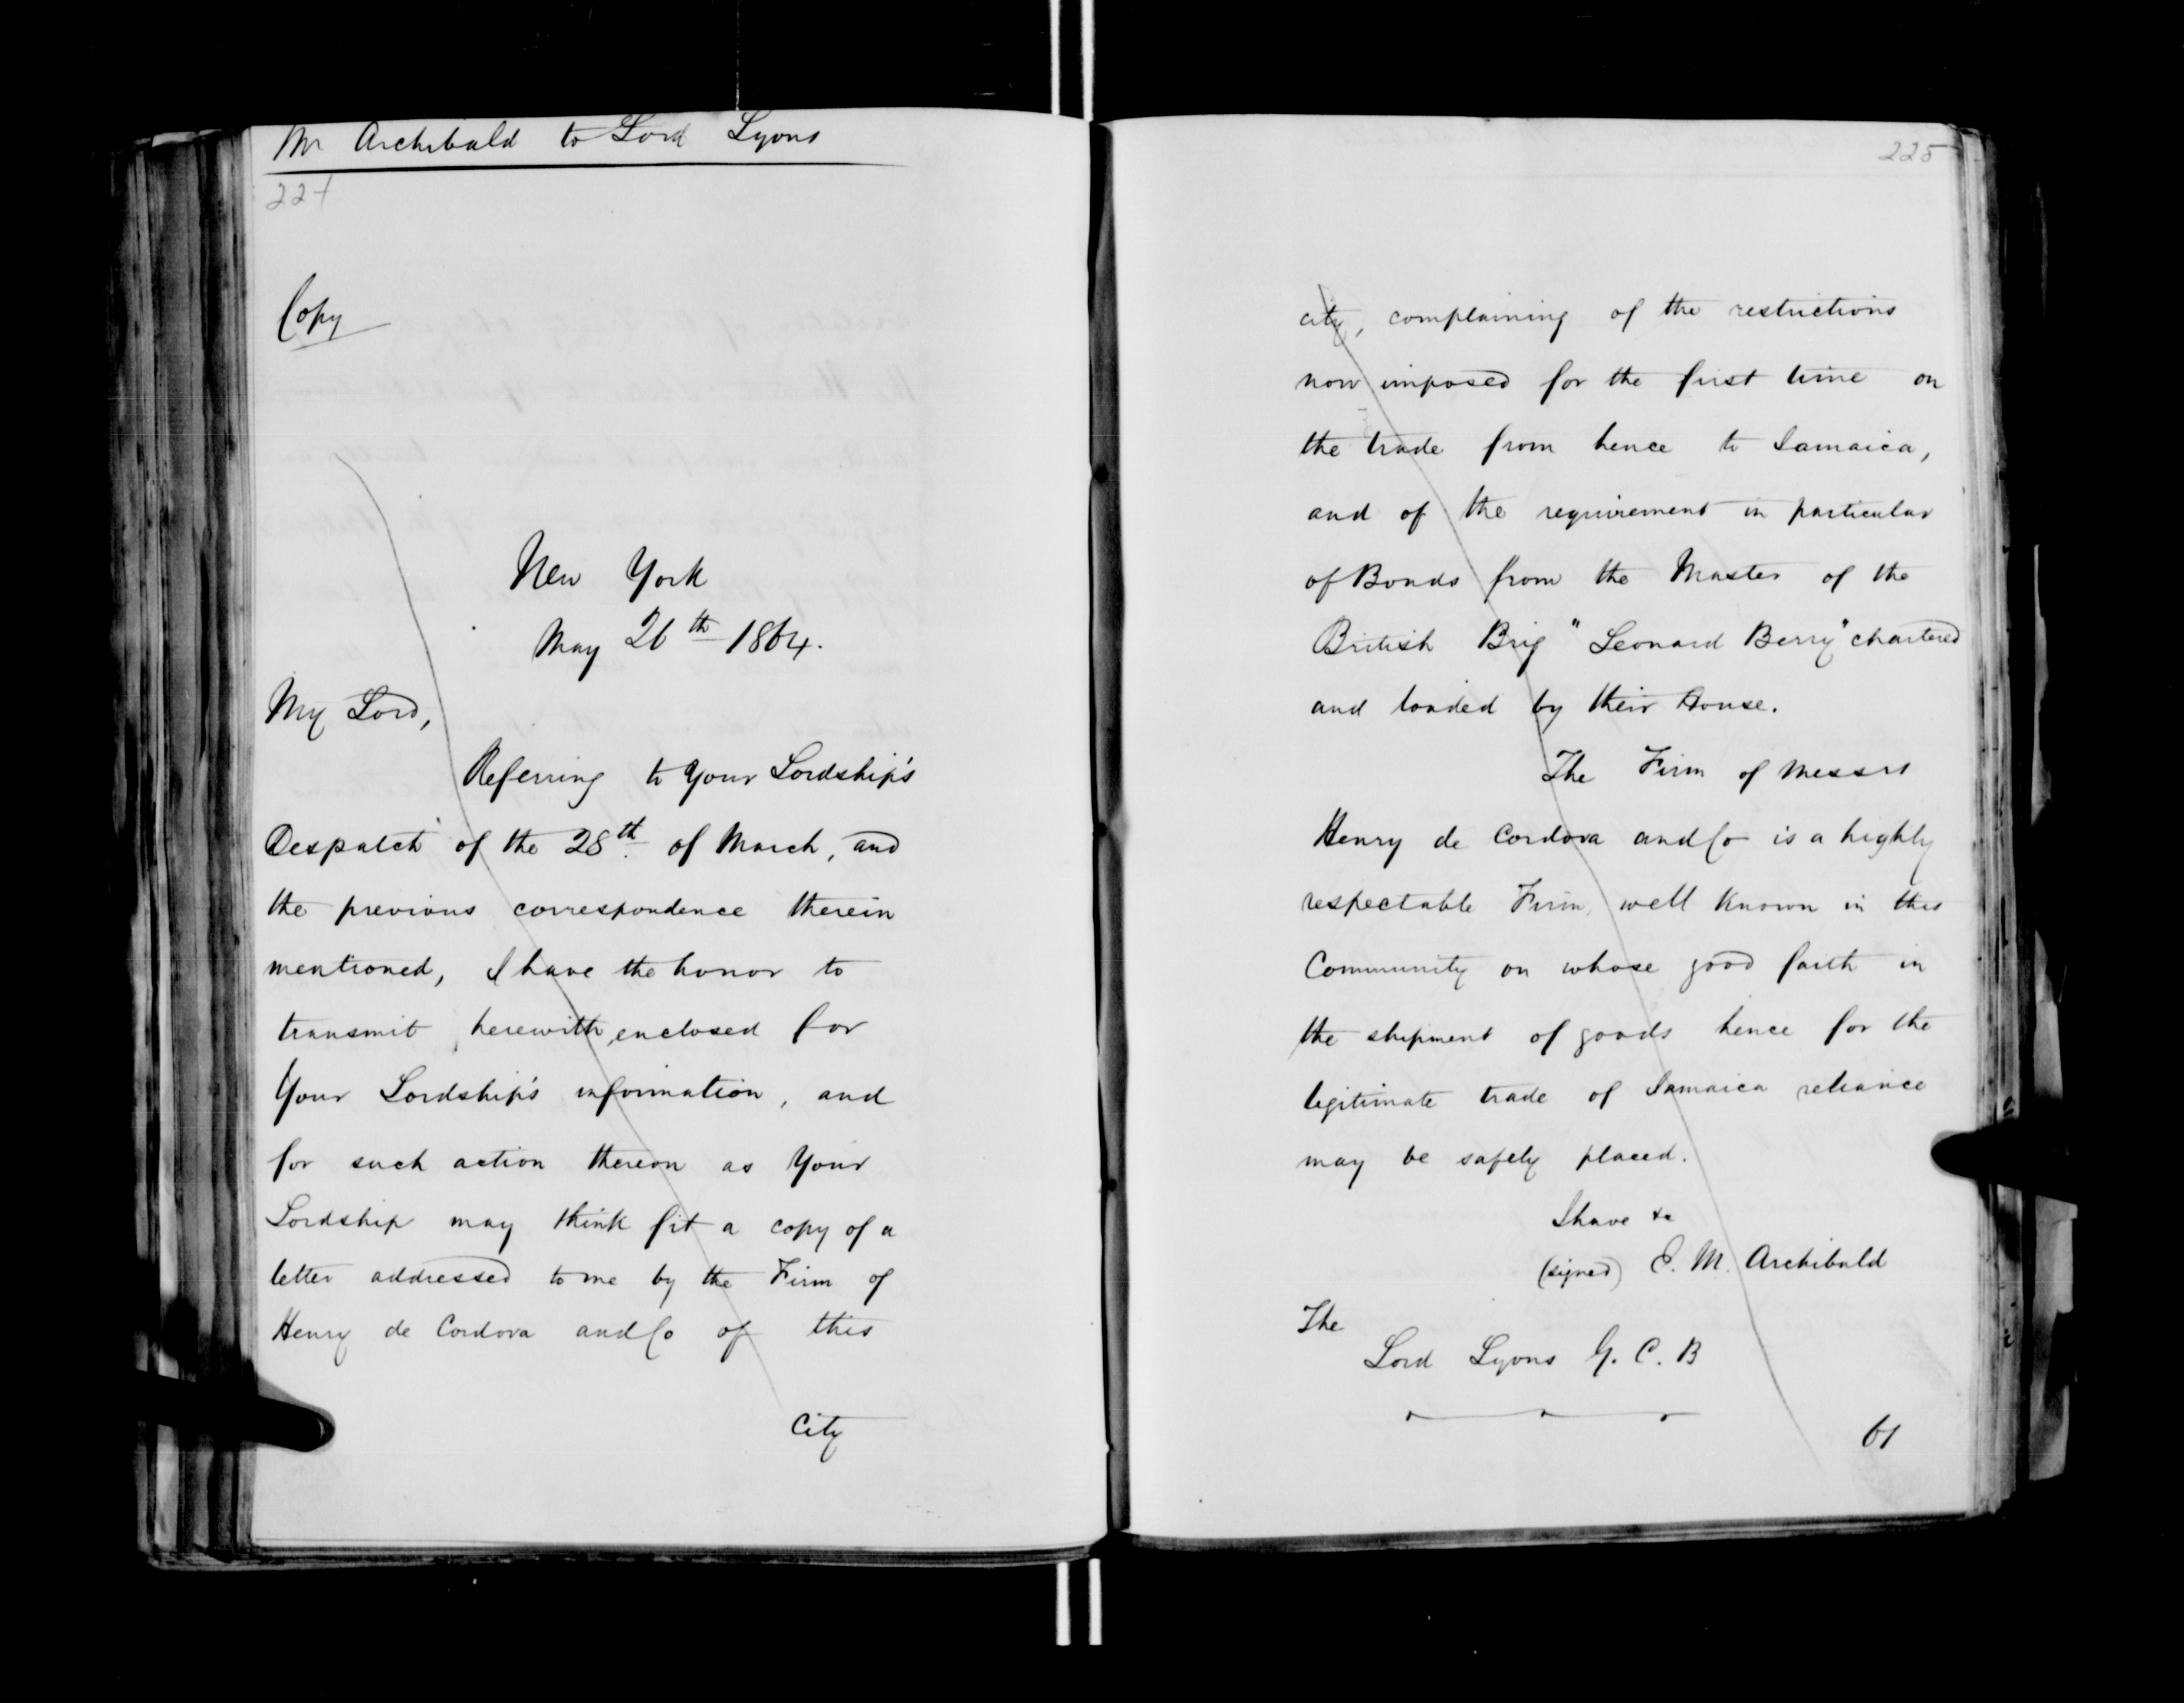 Mr Archibald to Lord Lyons
224
Copy
New York
May 26th 1864.
My Lord,
Referring to Your Lordship's
Despatch of the 28th of March, and
the previous correspondence therein
mentioned, I have the honor to
transmit, herewith, enclosed for
Your Lordship's information, and
for such action thereon as Your
Lordship may think fit a copy of a
letter addressed to me by the Firm of
Henry de Cordova and Co of this
City
225
city, complaining of the restrictions
now imposed for the first time on
the trade from hence to Jamaica,
and of the requirement in particular
of Bonds from the Master of the
British Brig "Leonard Berry" chartered
and loaded by their House.
The Firm of Messrs
Henry de Cordova and Co is a highly
respectable Firm, well known in this
Community on whose good faith in
the shipment of goods hence for the
legitimate trade of Jamaica reliance
may be safely placed.
I have &c
(signed) E. M. Archibald
The
Lord Lyons G. C. B
61